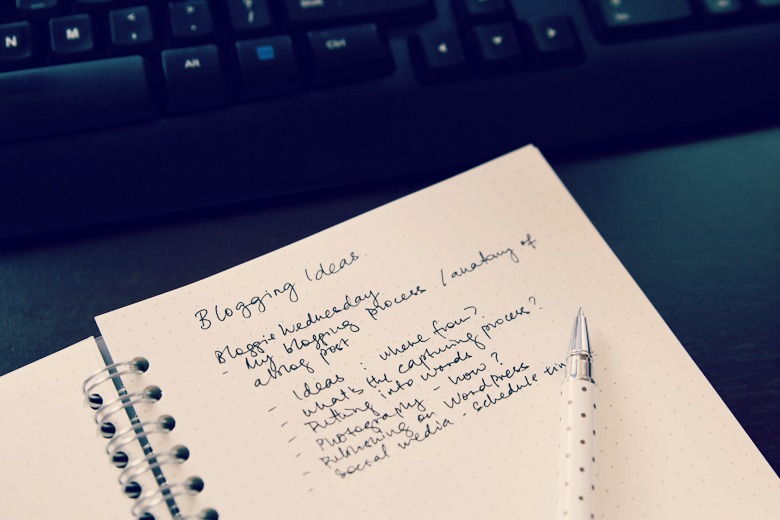 N M < , > . ? /
Alt Ctrl
Blogging Ideas.
Bloggie Wednesday
- My blogging process / anatomy of
a blog post
- Ideas : where from?
- what's the capturing process?
- Putting into words
- Photography - how?
- Publishing on WordPress
- Social media - schedule